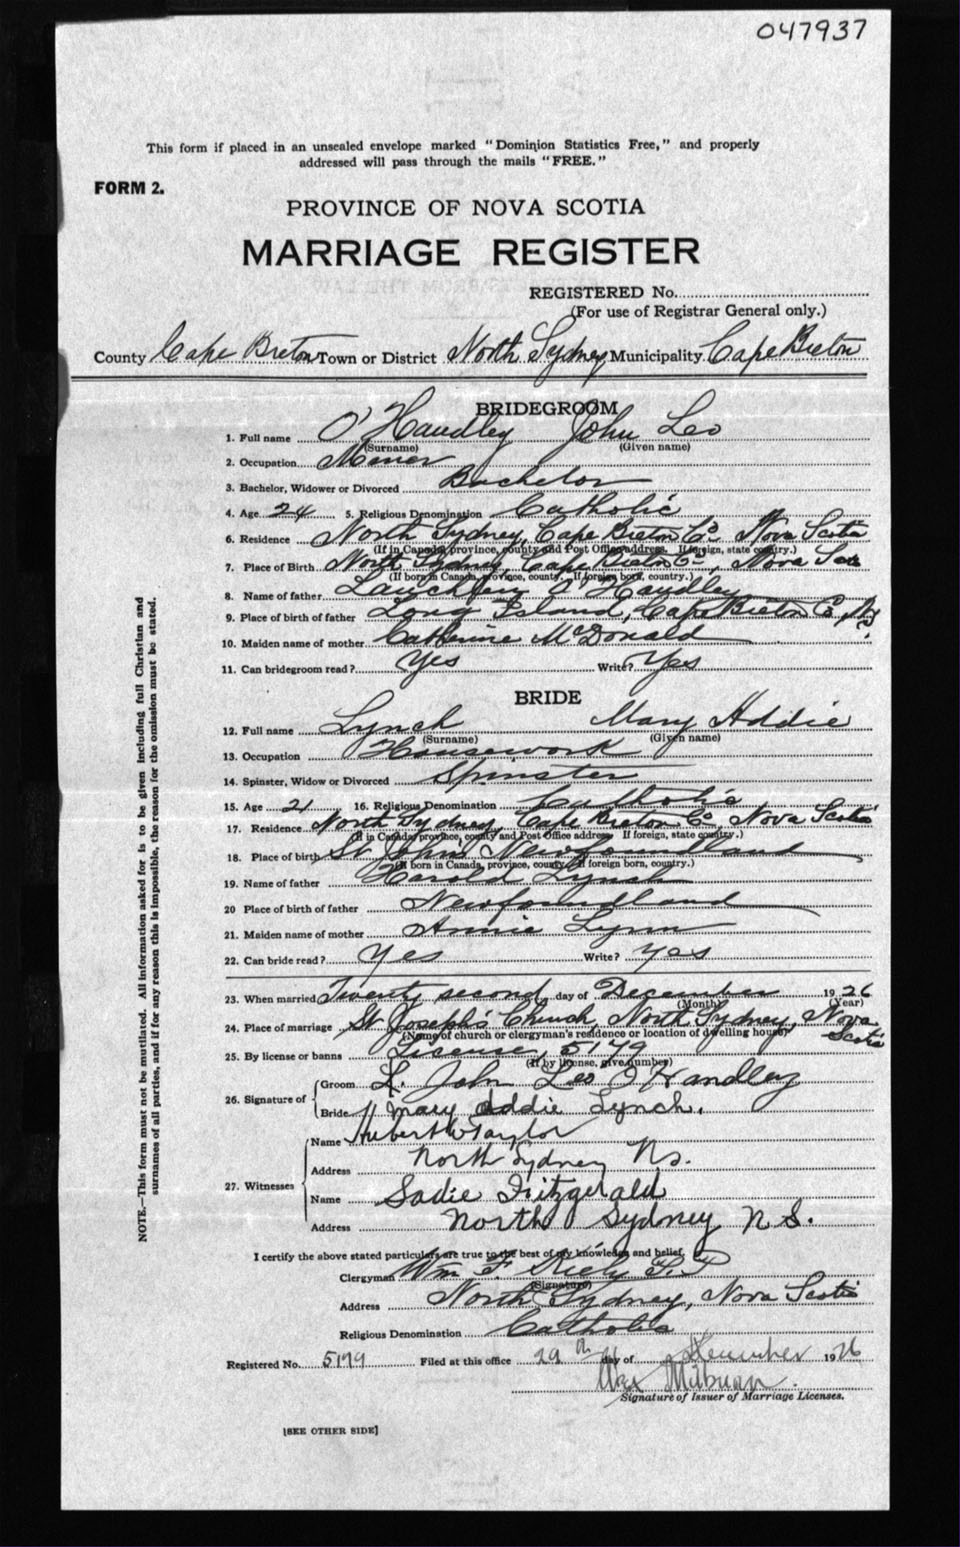 047937
This form if placed in an unsealed envelope marked "Dominion Statistics Free," and properly
addressed will pass through the mails "FREE."
FORM 2.
PROVINCE OF NOVA SCOTIA
MARRIAGE REGISTER
REGISTERED No.
(For use of Registrar General only.)
County Cape Breton Town or District North Sydney Municipality Cape Breton
BRIDEGROOM
1. Full name O'Handley John Leo
(Surname) (Given name)
2. Occupation Miner
3. Bachelor, Widower or Divorced Bachelor
4. Age 24 5. Religious Denomination Catholic
6. Residence North Sydney, Cape Breton Co. Nova Scotia
(If in Canada, province, county and Post Office address. If foreign, state country.)
7. Place of Birth North Sydney, Cape Breton Co., Nova Scotia
(If born in Canada, province, county. If foreign born, country.)
8. Name of father Lauchlin O'Handley
9. Place of birth of father Long Island, Cape Breton Co., N.S.
10. Maiden name of mother Catherine McDonald
11. Can bridegroom read? Yes Write? Yes
BRIDE
12. Full name Lynch Mary Addie
(Surname) (Given name)
13. Occupation Housework
14. Spinster, Widow or Divorced Spinster
15. Age 21 16. Religious Denomination Catholic
17. Residence North Sydney, Cape Breton Co., Nova Scotia
(If in Canada, province, county and Post Office address If foreign, state country.)
18. Place of birth St John's Newfoundland
(If born in Canada, province, county. If foreign born, country.)
19. Name of father Harold Lynch
20 Place of birth of father Newfoundland
21. Maiden name of mother Annie Lynn
22. Can bride read? Yes Write? Yes
23. When married Twenty second day of December 1926
(Month) (Year)
24. Place of marriage St Joseph's Church, North Sydney, Nova Scotia
(Name of church or clergyman's residence or location of dwelling house)
25. By license or banns License, 5179
(If by license, give number)
26. Signature of Groom L. John Leo O'Handley
Bride Mary Addie Lynch.
27. Witnesses Name Hubert W Taylor
Address North Sydney Ns.
Name Sadie Fitzgerald
Address North Sydney N.S.
I certify the above stated particulars are true to the best of my knowledge and belief.
Clergyman Wm F. Kiely P.P
(Signature)
Address North Sydney, Nova Scotia
Religious Denomination Catholic
Registered No. 5179 Filed at this office 29th day of December 1926
Milburn.
Signature of Issuer of Marriage Licenses.
[SEE OTHER SIDE]
NOTE.—This form must not be mutilated. All information asked for is to be given including full Christian and
surnames of all parties, and if for any reason this is impossible, the reason for the omission must be stated.